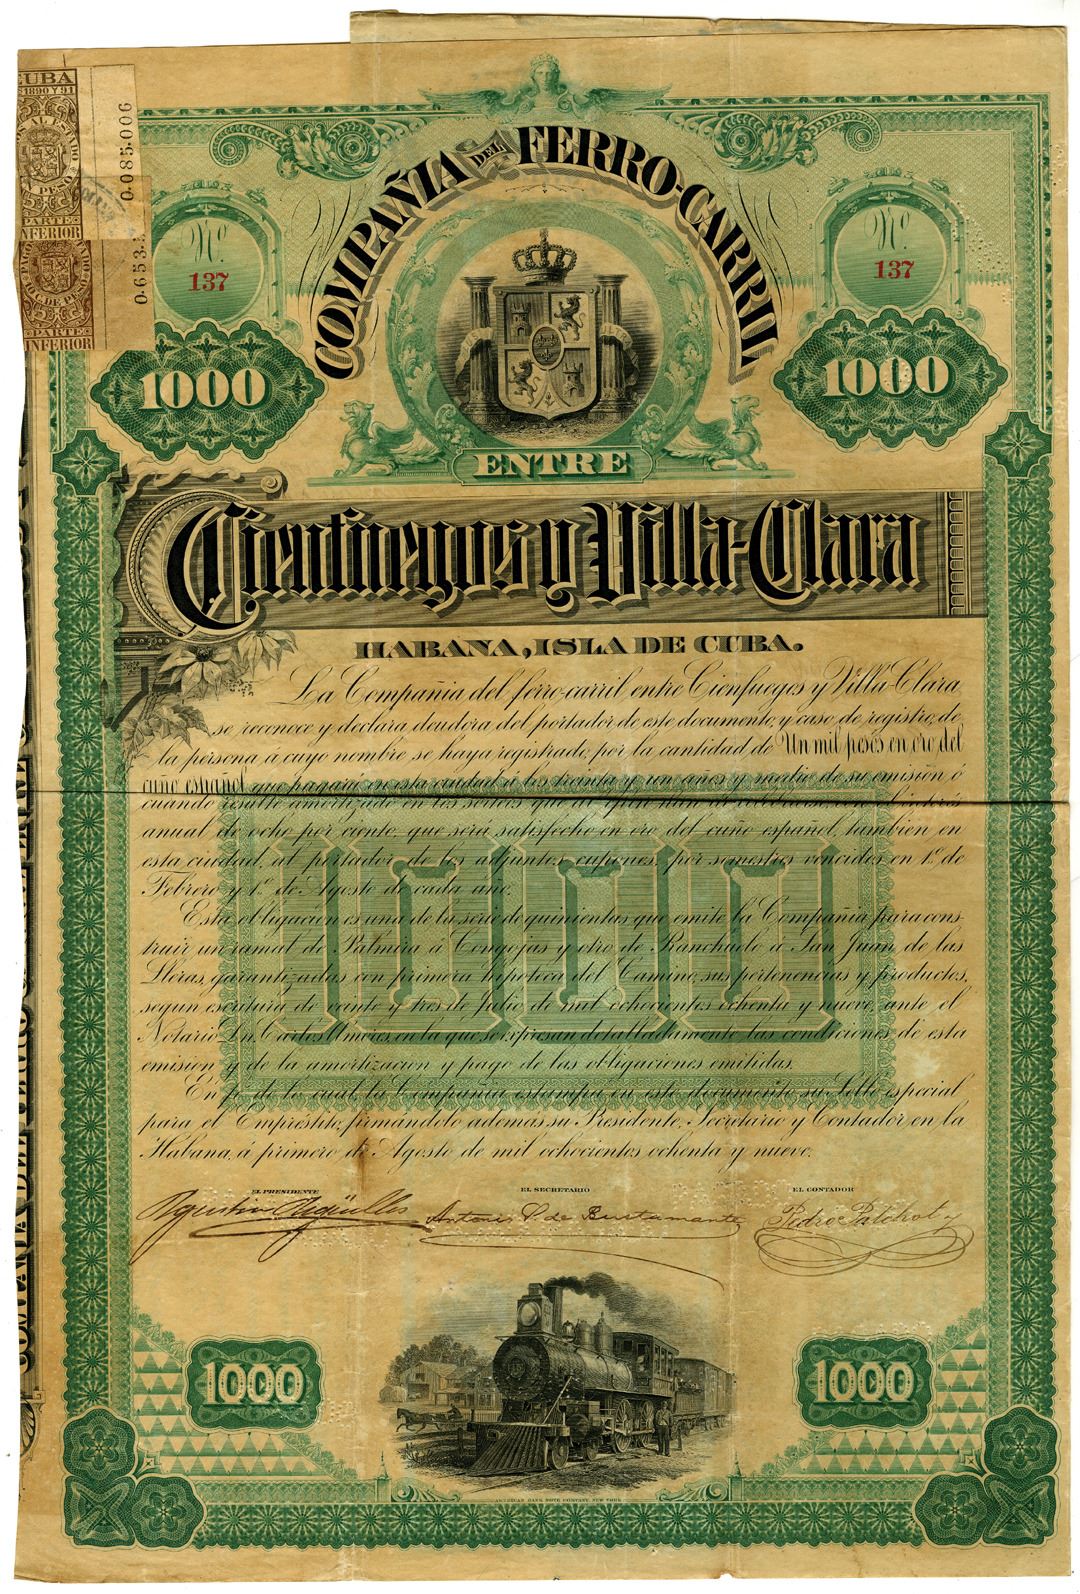 CUBA
1890 Y 91
PARTE
INFERIOR
0.085.006
0.653.
PARTE
INFERIOR
COMPAÑIA DEL FERRO-CARRIL
Nº.
137
Nº.
137
1000
1000
ENTRE
Cienfuegos y Villa-Clara
HABANA, ISLA DE CUBA.
La Compañia del ferro-carril entre Cienfuegos y Villa-Clara
se reconoce y declara deudora del portador de este documento, y caso de registro, de
la persona á cuyo nombre se haya registrado, por la cantidad de Un mil pesos en oro del
cuño español que pagará en esta ciudad á los treinta y un años y medio de su emisión ó
cuando resulte amortizado en los sorteos que al efecto han de celebrarse, con el interés
anual de ocho por ciento, que será satisfecho en oro del cuño español, tambien en
esta ciudad, al portador de los adjuntos cupones, por semestres vencidos en 1º. de
Febrero y 1º. de Agosto de cada año.
Esta obligacion es una de la serie de quinientas que emite la Compañia para cons-
truir un ramal de Palmira á Congojas y otro de Ranchuelo á San Juan de las
Lleras, garantizadas con primera hipoteca del Camino, sus pertenencias y productos,
segun escritura de veinte y tres de Julio de mil ochocientos ochenta y nueve, ante el
Notario Dn. Carlos Amores, en la que se expresan detalladamente las condiciones de esta
emision y de la amortizacion y pago de las obligaciones emitidas.
En fe de lo cual, la Compañia estampa en este documento su Sello especial
para el Empréstito, firmándolo además su Presidente, Secretario y Contador en la
Habana, á primero de Agosto de mil ochocientos ochenta y nueve.
EL PRESIDENTE
EL SECRETARIO
EL CONTADOR
Agustin Argüelles
Antonio S. de Bustamante
Pedro
1000
1000
AMERICAN BANK NOTE COMPANY, NEW YORK